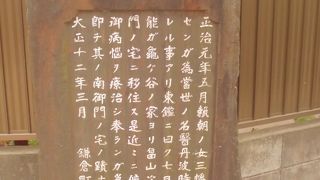 正治元年五月頼朝ノ女三幡
センガ為當世ノ名醫丹波時
レル事アリ東鑑ニ曰ク七日
能ガ龜ケ谷ノ家ヨリ畠山次
門ノ宅ニ移住ス是近ニ候
御病惱ヲ療治シ奉ランガ為
即チ其ノ南御門ノ宅ノ蹟ナ
大正十二年三月 鎌倉町